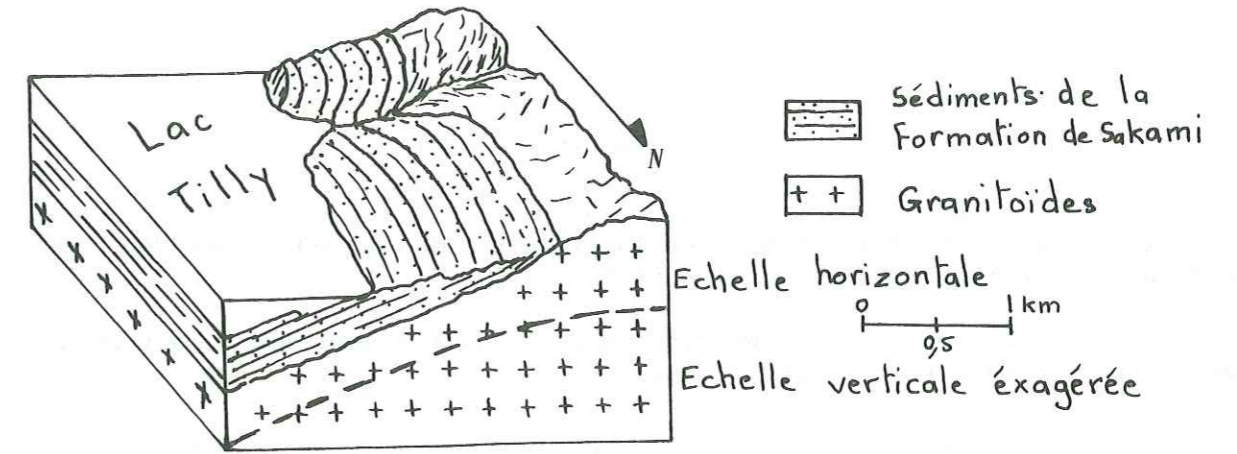 Lac
Tilly
N
Sédiments de la
Formation de Sakami
+ +
Granitoïdes
Echelle horizontale
0
1 km
0,5
Echelle verticale éxagérée